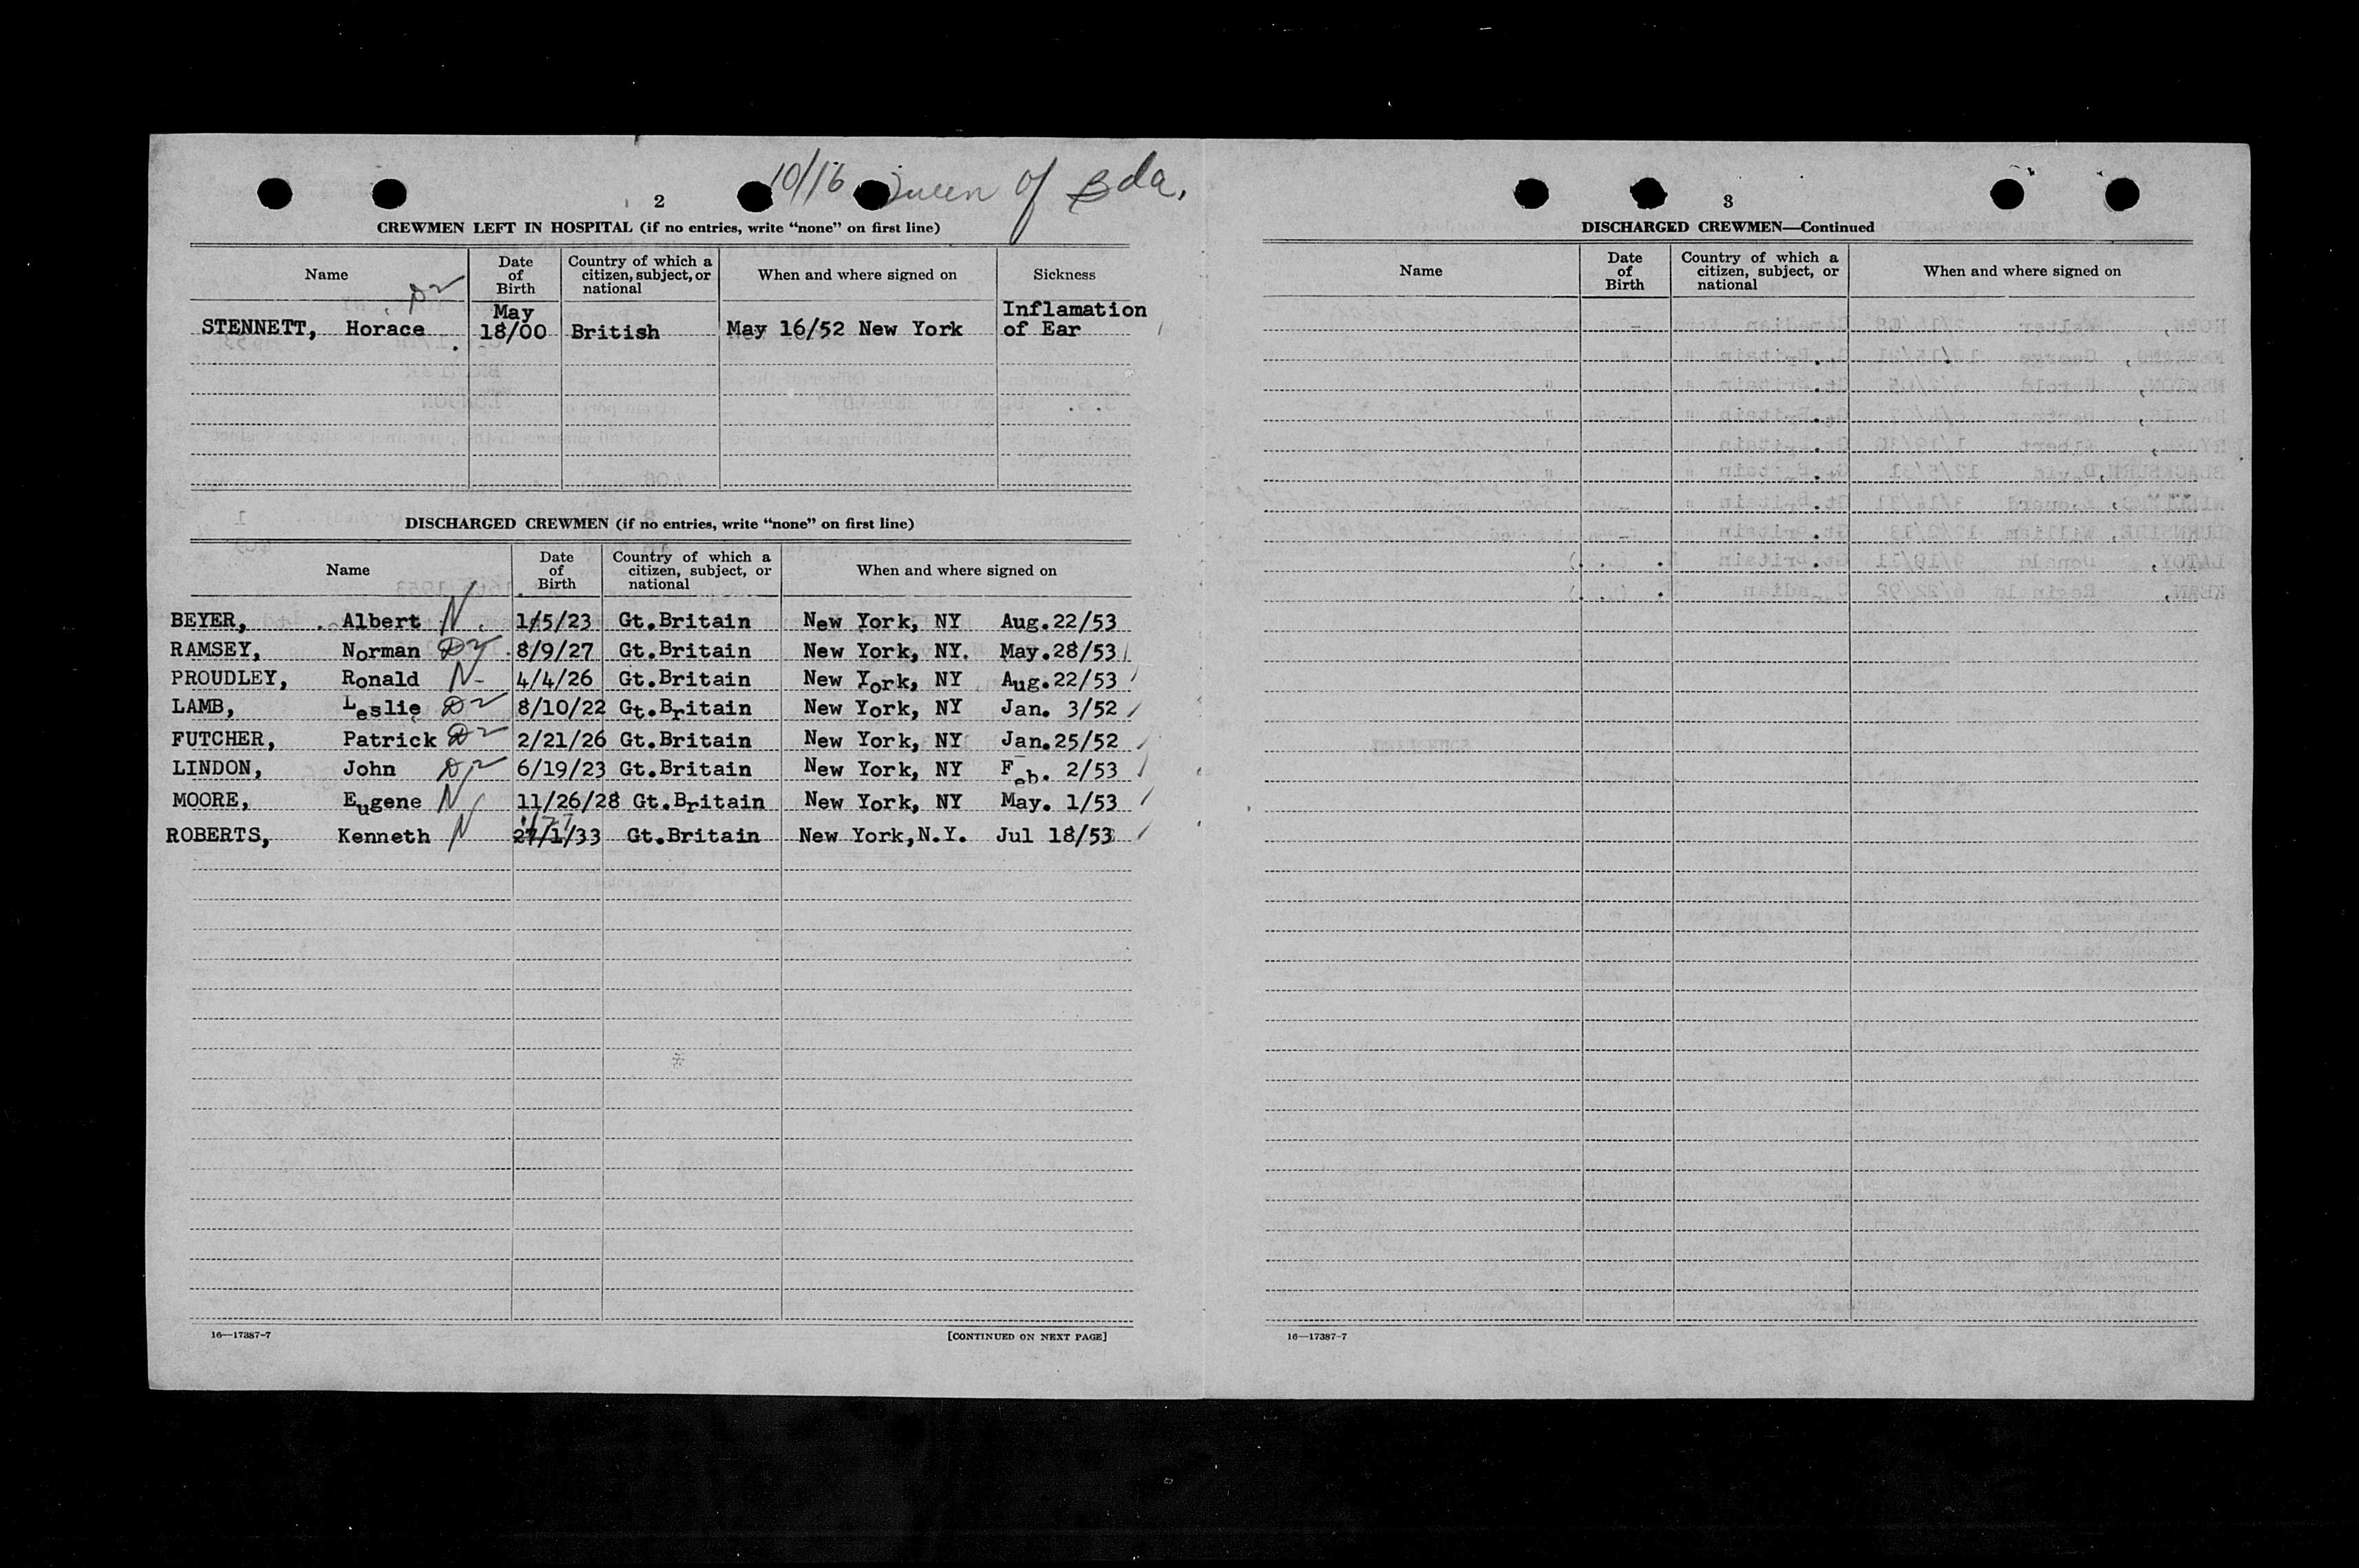 10/16 Queen of Bda.
2
CREWMEN LEFT IN HOSPITAL (if no entries, write “none” on first line)
Name Date of Birth Country of which a citizen, subject, or national When and where signed on Sickness
STENNETT, Horace D2 May 18/00 British May 16/52 New York Inflamation of Ear
DISCHARGED CREWMEN (if no entries, write “none” on first line)
Name Date of Birth Country of which a citizen, subject, or national When and where signed on
BEYER, Albert N 1/5/23 Gt.Britain New York, NY Aug.22/53
RAMSEY, Norman D2 8/9/27 Gt.Britain New York, NY. May.28/53
PROUDLEY, Ronald N 4/4/26 Gt.Britain New York, NY Aug.22/53
LAMB, Leslie D2 8/10/22 Gt.Britain New York, NY Jan. 3/52
FUTCHER, Patrick D2 2/21/26 Gt.Britain New York, NY Jan.25/52
LINDON, John D2 6/19/23 Gt.Britain New York, NY Feb. 2/53
MOORE, Eugene N 11/26/28 Gt.Britain New York, NY May. 1/53
ROBERTS, Kenneth N 27/1/33 Gt.Britain New York,N.Y. Jul 18/53
16—17387-7 [CONTINUED ON NEXT PAGE]
3
DISCHARGED CREWMEN—Continued
Name Date of Birth Country of which a citizen, subject, or national When and where signed on
16—17387-7